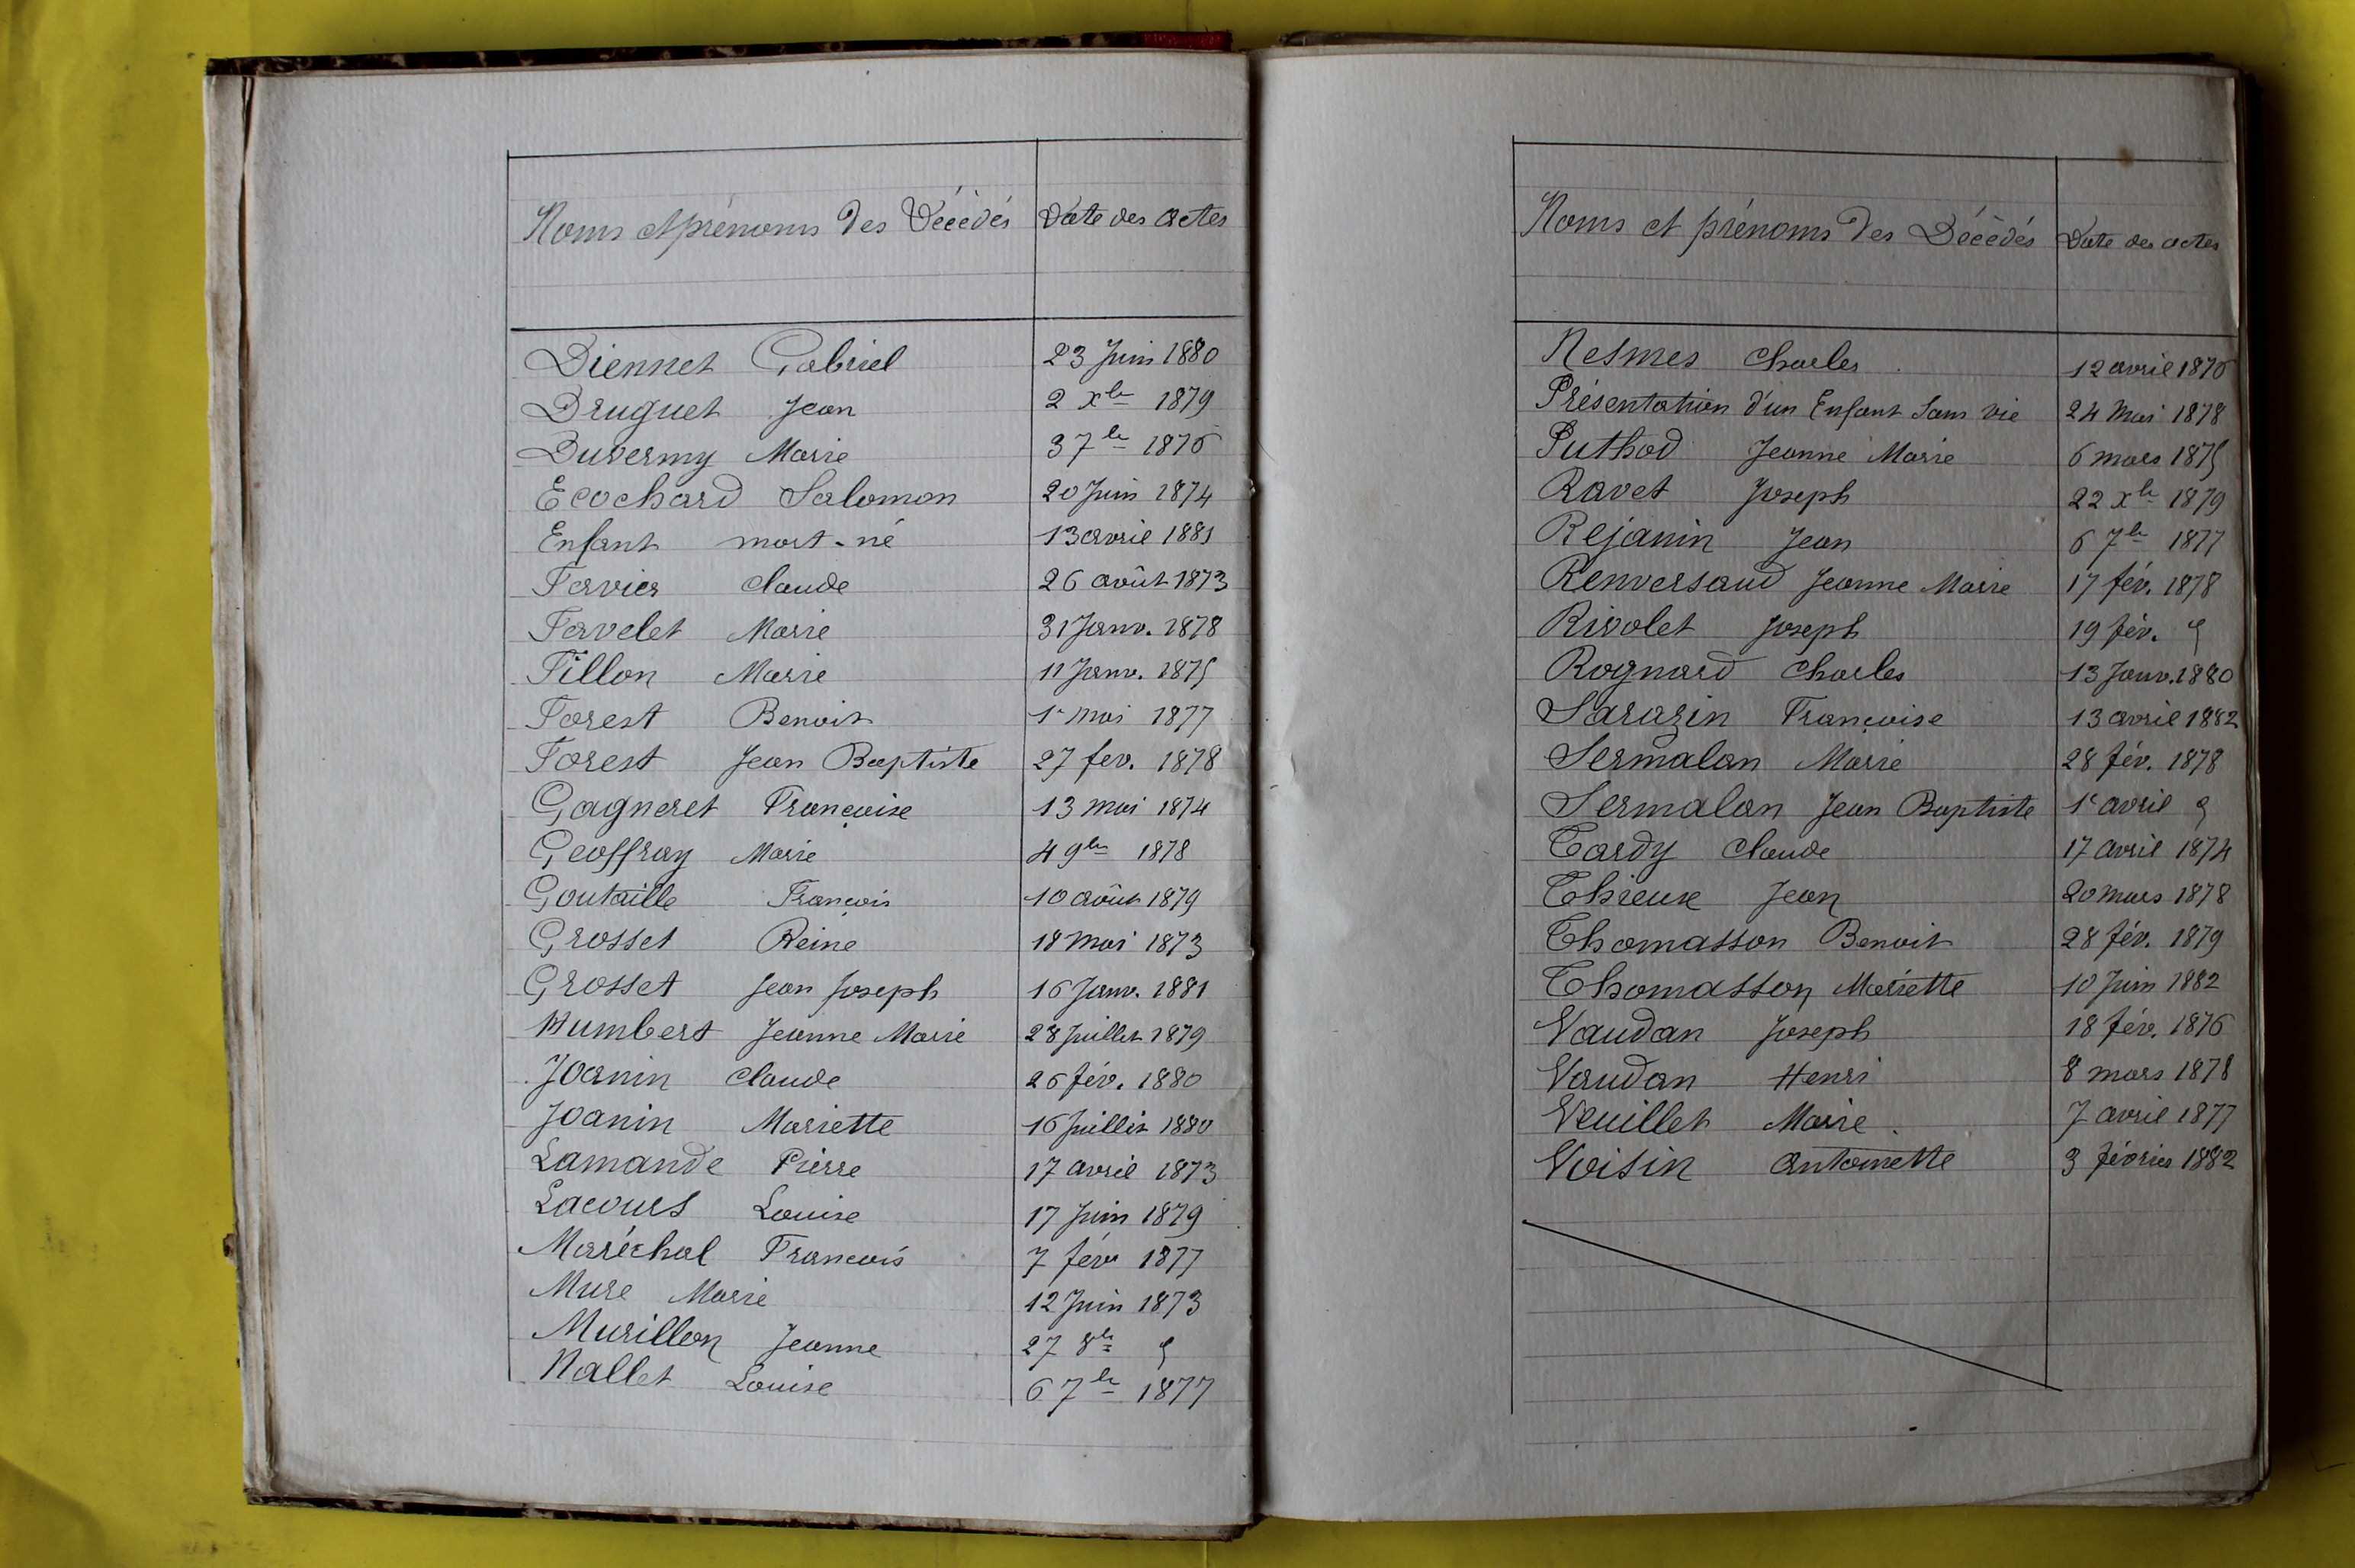 Noms et prénoms des Décédés Date des actes
Diennet Gabriel 23 Juin 1880
Druguet Jean 2 Xbre 1879
Duvermy Marie 3 7bre 1876
Ecochard Salomon 20 Juin 1874
Enfant mort-né 13 avril 1881
Favier Claude 26 août 1873
Favelet Marie 31 Janv. 1878
Fillon Marie 11 Janv. 1875
Forest Benoit 1r mai 1877
Forest Jean Baptiste 27 fev. 1878
Gagneret Françoise 13 mai 1874
Geoffray Marie 4 9bre 1878
Goutaille François 10 août 1879
Grosset Reine 18 mai 1873
Grosset Jean Joseph 16 Janv. 1881
Humbert Jeanne Marie 28 Juillet 1879
Joanin Claude 26 fév. 1880
Joanin Mariette 16 Juillet 1880
Lamande Pierre 17 avril 1873
Lacours Louise 17 Juin 1879
Maréchal François 7 fév. 1877
Mure Marie 12 Juin 1873
Murillon Jeanne 27 8bre
Nallet Louise 6 7bre 1877
Noms et prénoms des Décédés Date des actes
Nesmes Charles 12 avril 1876
Présentation d'un Enfant Sans vie 24 Mai 1878
Puthod Jeanne Marie 6 mars 1875
Ravet Joseph 22 Xbre 1879
Rejanin Jean 6 7bre 1877
Renversaud Jeanne Marie 17 fév. 1878
Rivolet Joseph 19 fév.
Rognard Charles 13 Janv. 1880
Sarazin Françoise 13 avril 1882
Sermalan Marie 28 fév. 1878
Sermalan Jean Baptiste 1r avril
Tardy Claude 17 avril 1874
Thieux Jean 20 mars 1878
Thomasson Benoit 28 fév. 1879
Thomasson Mariette 10 Juin 1882
Vaudan Joseph 18 fév. 1876
Vaudan Henri 8 mars 1878
Veuillet Marie 7 avril 1877
Voisin Antoinette 3 février 1882